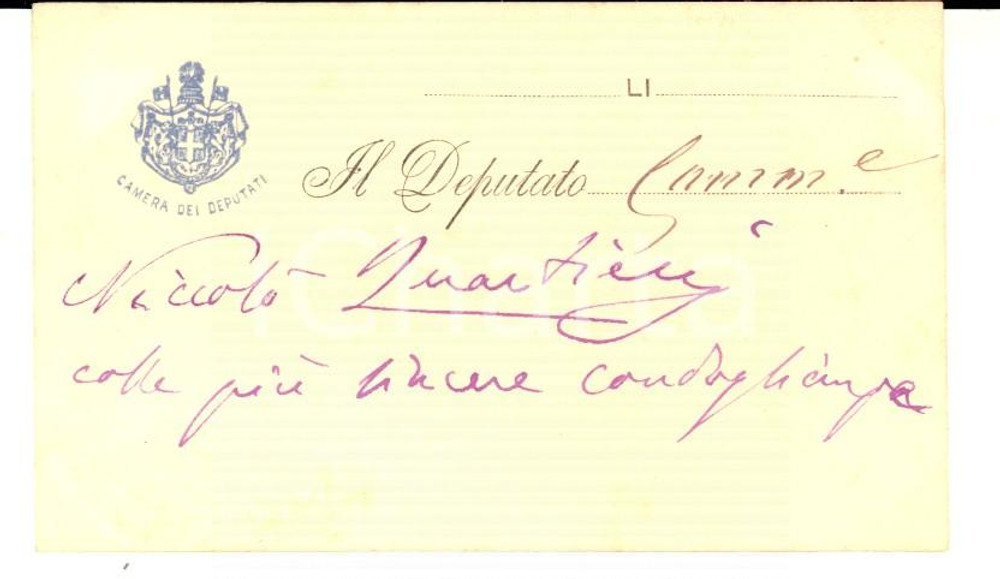 LI
CAMERA DEI DEPUTATI
Il Deputato Comm.e
Niccolò Quartieri
colle più sincere condoglianze